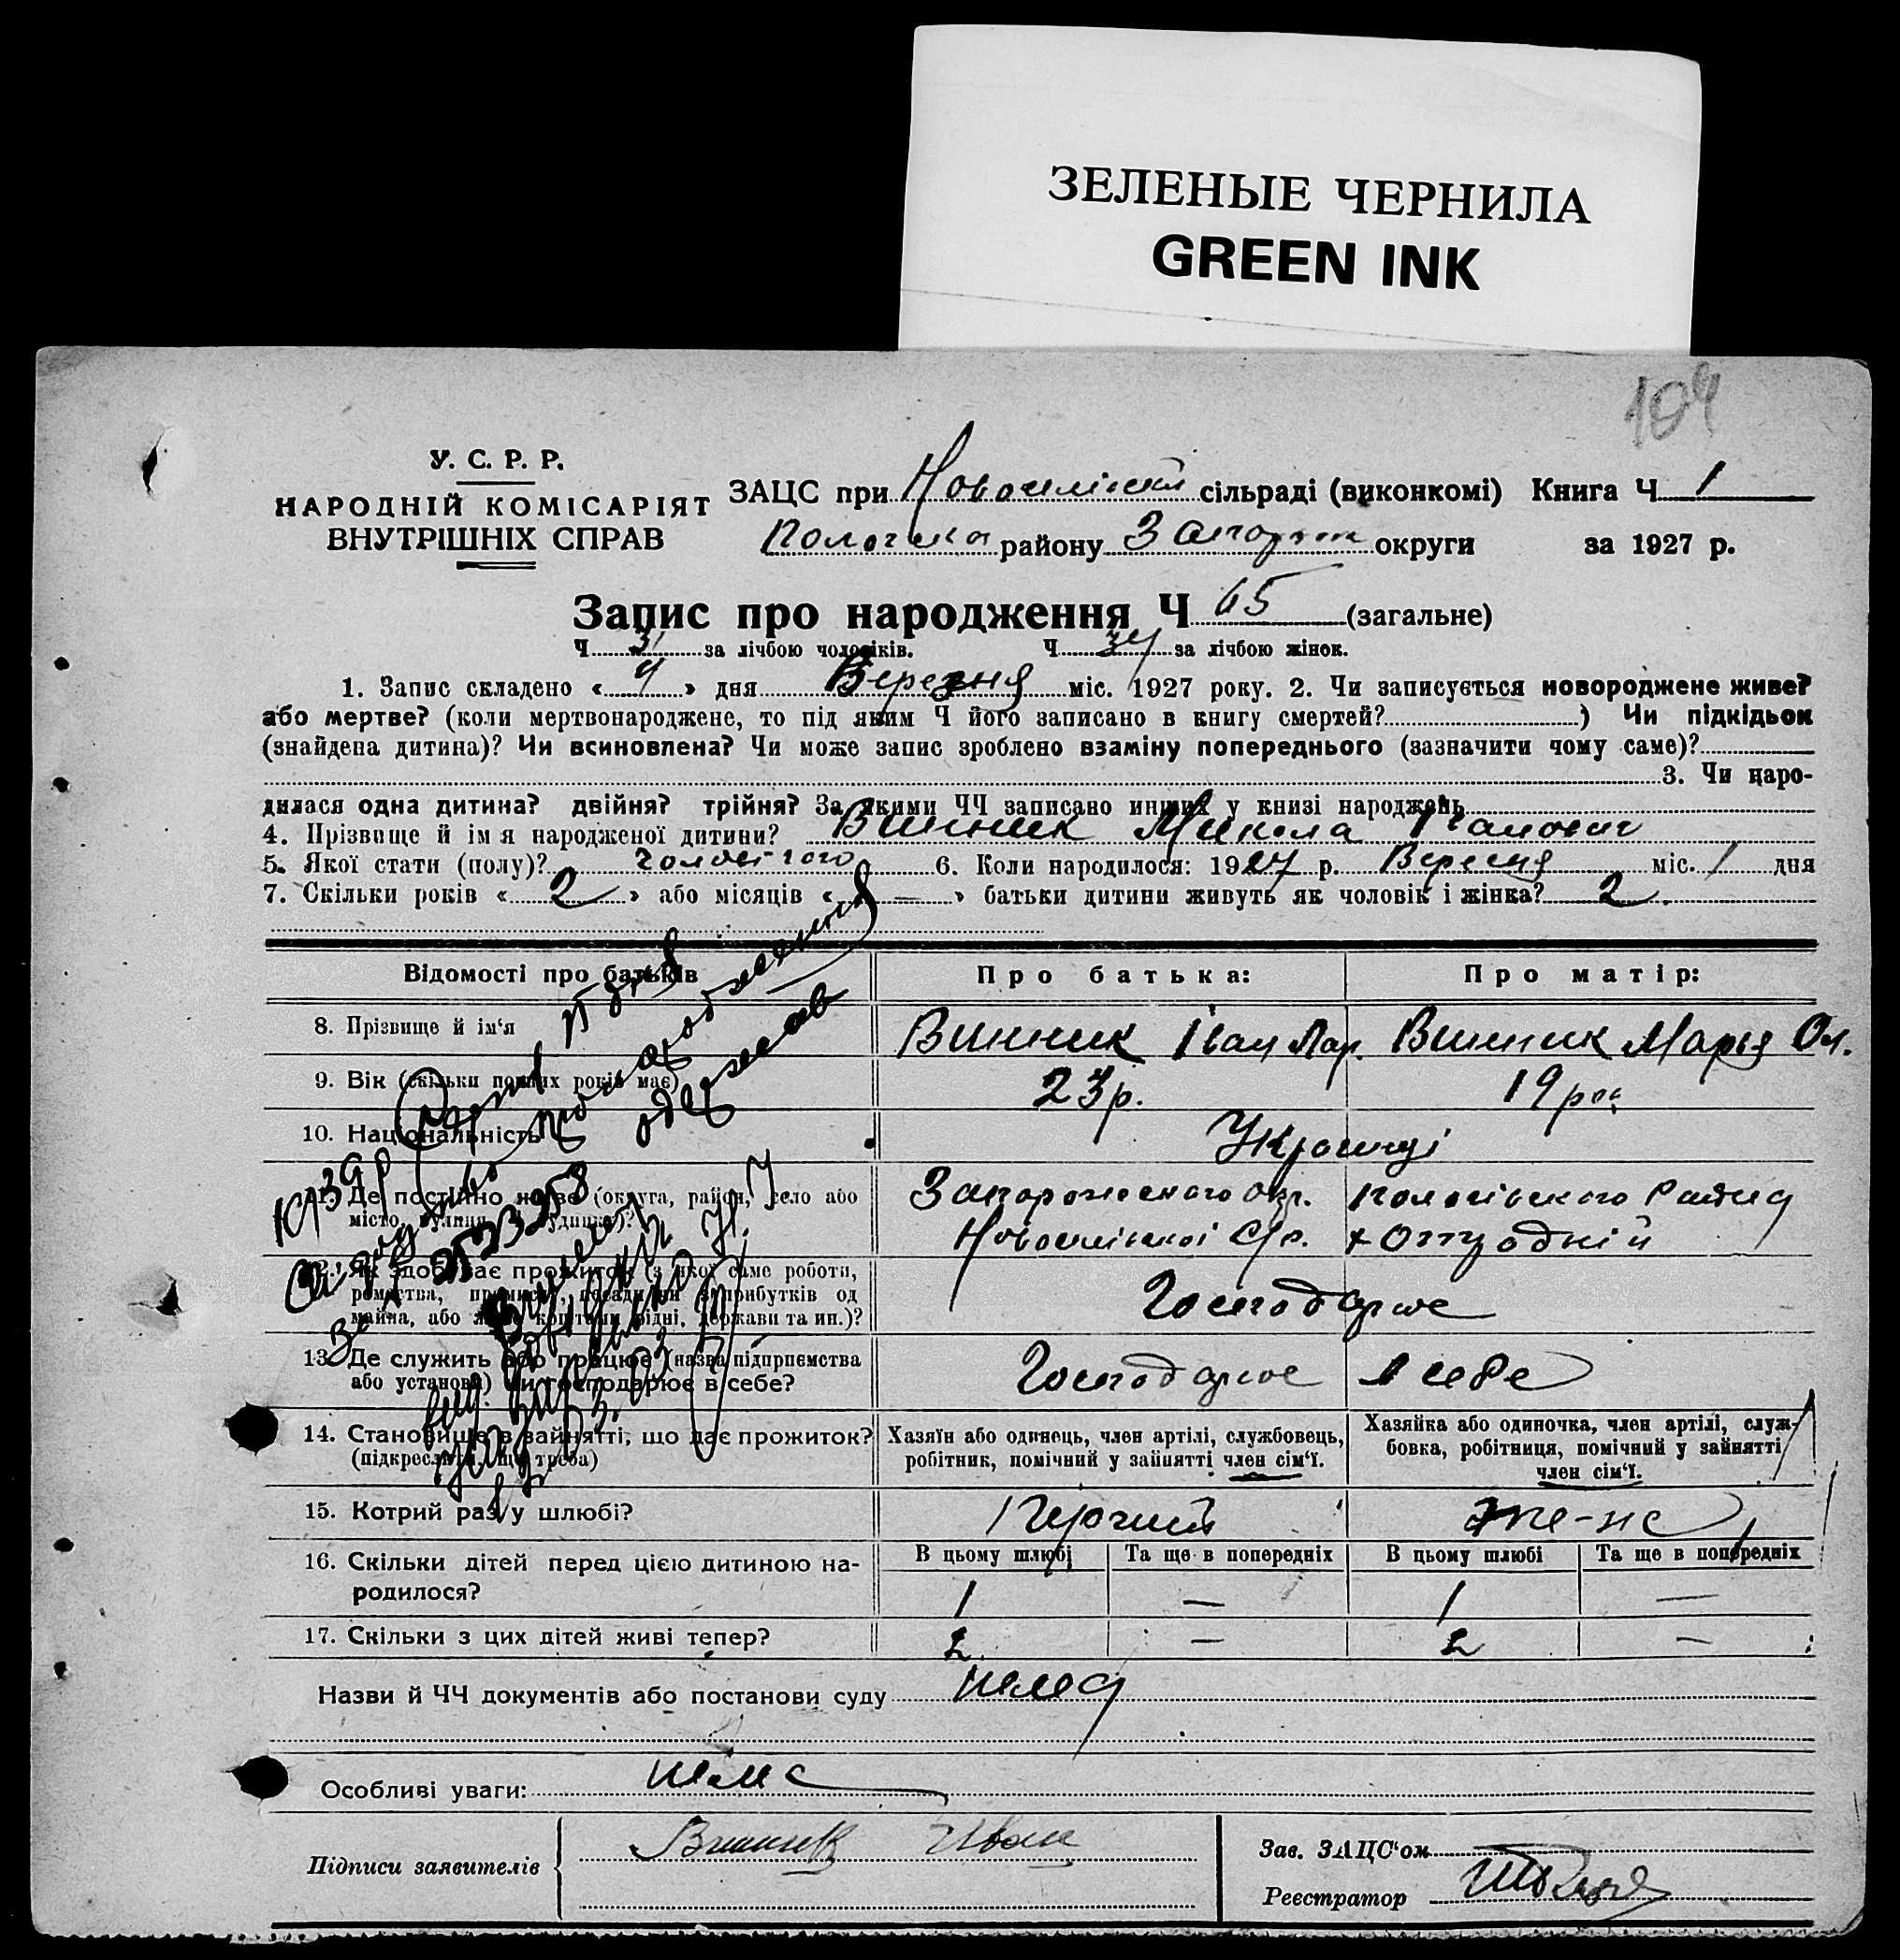 ЗЕЛЕНЫЕ ЧЕРНИЛА
GREEN INK
104
У. С. Р. Р.
НАРОДНІЙ КОМІСАРІЯТ
ВНУТРІШНІХ СПРАВ
ЗАЦС при сільраді (виконкомі) Книга Ч 1
району округи за 1927 р.
Запис про народження Ч 65 (загальне)
Ч 31 за лічбою чоловіків. Ч 34 за лічбою жінок.
1. Запис складено «4» дня Березня міс. 1927 року. 2. Чи записується новороджене живе?
або мертве? (коли мертвонароджене, то під яким Ч його записано в книгу смертей?) Чи підкідьок
(знайдена дитина)? Чи всиновлена? Чи може запис зроблено взаміну попереднього (зазначити чому саме)?
3. Чи наро-
дилася одна дитина? двійня? трійня? За якими ЧЧ записано инших у книзі народжень
4. Прізвище й імя народженої дитини? Винник Микола Іванович
5. Якої стати (полу)? 6. Коли народилося: 1927 р. Березня міс. 1 дня
7. Скільки років «2» або місяців «—» батьки дитини живуть як чоловік і жінка? 2.
Відомості про батьків Про батька: Про матір:
8. Прізвище й ім'я Винник Іван Лар. Винник Марья Ол.
9. Вік (скільки повних років має) 23 р. 19 рок
10. Національність Українці
11. Де постійно живе (округа, район, село або
місто, вулиця й будинок)?
12. Як здобуває прожиток (з якої саме роботи,
ремества, промислу, посади чи з прибутків од
майна, або коштами рідні, держави та ин.)?
Господарює
13. Де служить або працює (назва підприємства
або установи) чи господарює в себе?
Господарює в себе
14. Становище в зайнятті, що дає прожиток?
(підкреслити, що треба)
Хазяїн або одинець, член артілі, службовець,
робітник, помічний у зайнятті член сім'ї.
Хазяйка або одиночка, член артілі, служ-
бовка, робітниця, помічний у зайнятті
член сім'ї.
15. Котрий раз у шлюбі? Перший
16. Скільки дітей перед цією дитиною на-
родилося?
В цьому шлюбі Та ще в попередніх В цьому шлюбі Та ще в попередніх
1 — 1 —
17. Скільки з цих дітей живі тепер? 2 — 2 —
Назви й ЧЧ документів або постанови суду нема
Особливі уваги: нема
Підписи заявителів Винник Иван
Зав. ЗАЦС'ом
Реєстратор